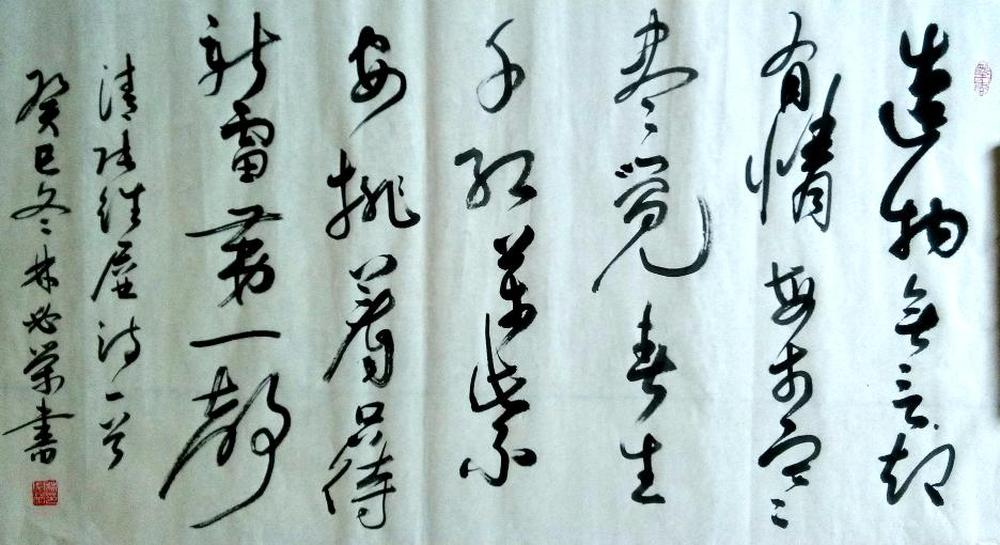 造物無言却
有情每於寒
尽觉春生
千红萬紫
安排着只待
新雷第一聲
清张维屏诗一首
癸巳冬林必荣书